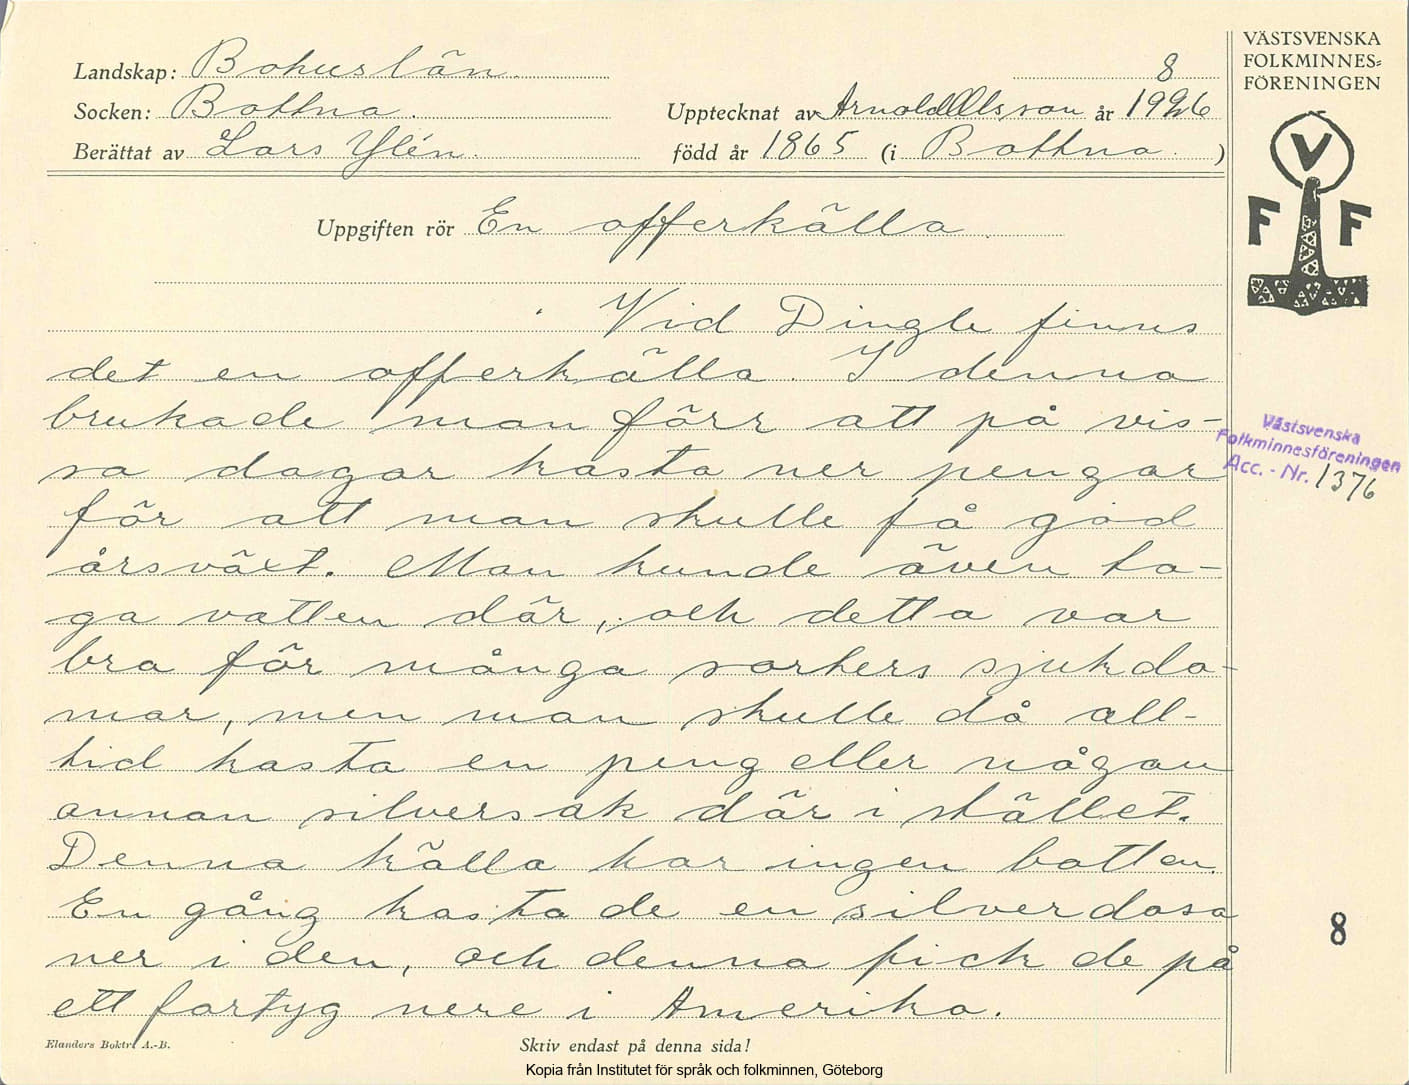 Landskap: Bohuslän. 8
Socken: Bottna. Upptecknat av Arnold Olsson år 1926
Berättat av Lars Ylén. född år 1865 (i Bottna.)
Uppgiften rör En offerkälla.
Vid Dingle finns
det en offerkälla. I denna
brukade man förr att på vis-
sa dagar kasta ner pengar
för att man skulle få god
årsväxt. Man kunde även ta-
ga vatten där, och detta var
bra för många sorkers sjukdo-
mar, men man skulle då all-
tid kasta en peng eller någon
annan silversak där i stället.
Denna källa har ingen botten.
En gång kasta de en silverdosa
ner i den, och denna fick de på
ett fartyg nere i Amerika.
Elanders Boktr. A.-B. Skriv endast på denna sida!
Kopia från Institutet för språk och folkminnen, Göteborg
VÄSTSVENSKA
FOLKMINNES=
FÖRENINGEN
V
F F
Västsvenska
Folkminnesföreningen
Acc. - Nr. 1376
8